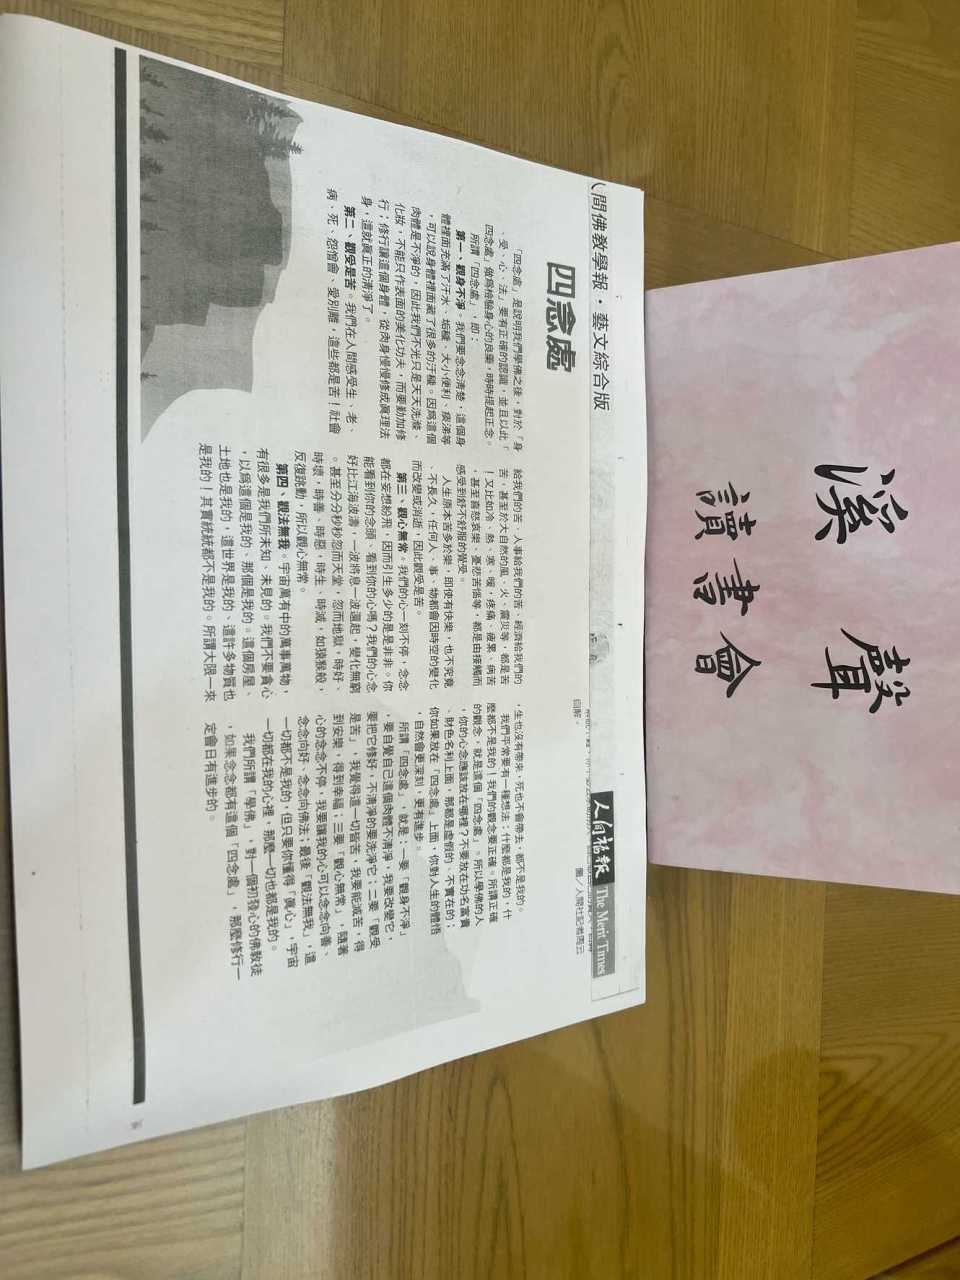 溪聲
讀書會
間佛教學報・藝文綜合版
人間福報 The Merit Times
圖／人間社記者周云
四念處
「四念處」是說明我們學佛之後，對於「身
、受、心、法」要有正確的認識，並且以此「
四念處」做為檢驗身心的良藥，時時提起正念。
所謂「四念處」，即：
第一、觀身不淨。我們要念念清楚，這個身
體裡面充滿了汗水、垢穢、大小便利、痰涕等
，可以說身體裡面藏了很多的汙穢。因為這個
肉體是不淨的，因此我們不光只是天天洗滌、
化妝，不能只作表面的美化功夫，而要勤加修
行；修行讓這個身體，從肉身慢慢修成真理法
身，這就真正的清淨了。
第二、觀受是苦。我們在人間感受生、老、
病、死、怨憎會、愛別離，這些都是苦！社會
給我們的苦、人事給我們的苦、經濟給我們的
苦，甚至於大自然的風、火、震災等，都是苦
！又比如冷、熱、寒、暖，疼痛、疲累、病苦
，甚至喜怒哀樂、憂悲苦惱等，都是由接觸而
感受到舒不舒服的覺受。
人生原本苦多於樂，即使有快樂，也不究竟
、不長久，任何人、事、物都會因時空的變化
而改變或消逝，因此觀受是苦。
第三、觀心無常。我們的心一刻不停，念念
都在妄想紛飛，因而引生多少的是是非非。你
能看到你的念頭、看到你的心嗎？我們的心念
好比江海波濤，一波將息一波還起，變化無窮
。甚至分分秒秒忽而天堂，忽而地獄，時好、
時壞，時善、時惡，時生、時滅，如猿猴般，
反復跳動，所以觀心無常。
第四、觀法無我。宇宙萬有中的萬事萬物，
有很多是我們所未知、未見的。我們不要貪心
，以為這個是我的、那個是我的。這個房屋、
土地也是我的，這世界是我的、這許多物質也
是我的！其實統統都不是我的。所謂大限一來
，生也沒有帶來，死也不會帶去，都不是我的。
我們平常要有一種想法：什麼都是我的，什
麼都不是我的！我們的觀念要正確。所謂正確
的觀念，就是這個「四念處」。所以學佛的人
，你的心念應該放在哪裡？不要放在功名富貴
、財色名利上面，那都是虛假的、不實在的；
你如果放在「四念處」上面，你對人生的體悟
，自然會更深刻，更有進步。
所謂「四念處」，就是：一要「觀身不淨」
，要自覺自己這個肉體不清淨，我要改變它，
要把它修好，不清淨的要洗淨它；二要「觀受
是苦」，我覺得這一切皆苦，我要能減苦，得
到安樂，得到幸福；三要「觀心無常」，隨著
心的念念不停，我要讓我的心可以念念向善、
念念向好、念念向佛法；最後「觀法無我」，這
一切都不是我的，但只要你懂得「真心」，宇宙
一切都在我的心裡，那麼一切也都是我的。
我們所謂「學佛」，對一個初發心的佛教徒
，如果念念都有這個「四念處」，那麼修行一
定會日有進步的。